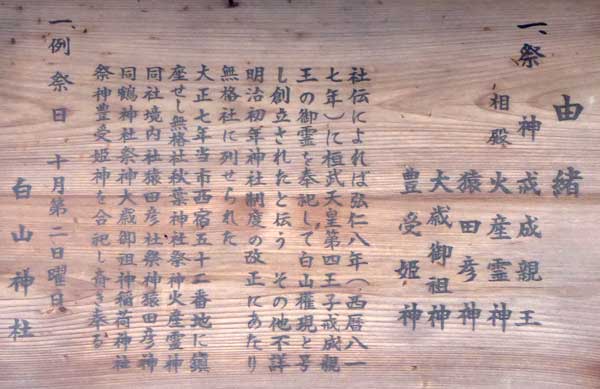 由緒
一、祭神 戒成親王
相殿 火産霊神
猿田彦神
大歳御祖神
豊受姫神
社伝によれば弘仁八年(西暦八一
七年)に桓武天皇第四王子戒成親
王の御霊を奉祀して白山権現と号
し創立されたと伝う その他不詳
明治初年神社制度の改正にあたり
無格社に列せられた
大正七年当市西宿五十二番地に鎮
座せし無格社秋葉神社祭神火産霊神
同社境内社猿田彦社祭神猿田彦神
同鴨神社祭神大歳御祖神稲荷神社
祭神豊受姫神を合祀し斎き奉る
一、例祭日 十月第二日曜日
白山神社